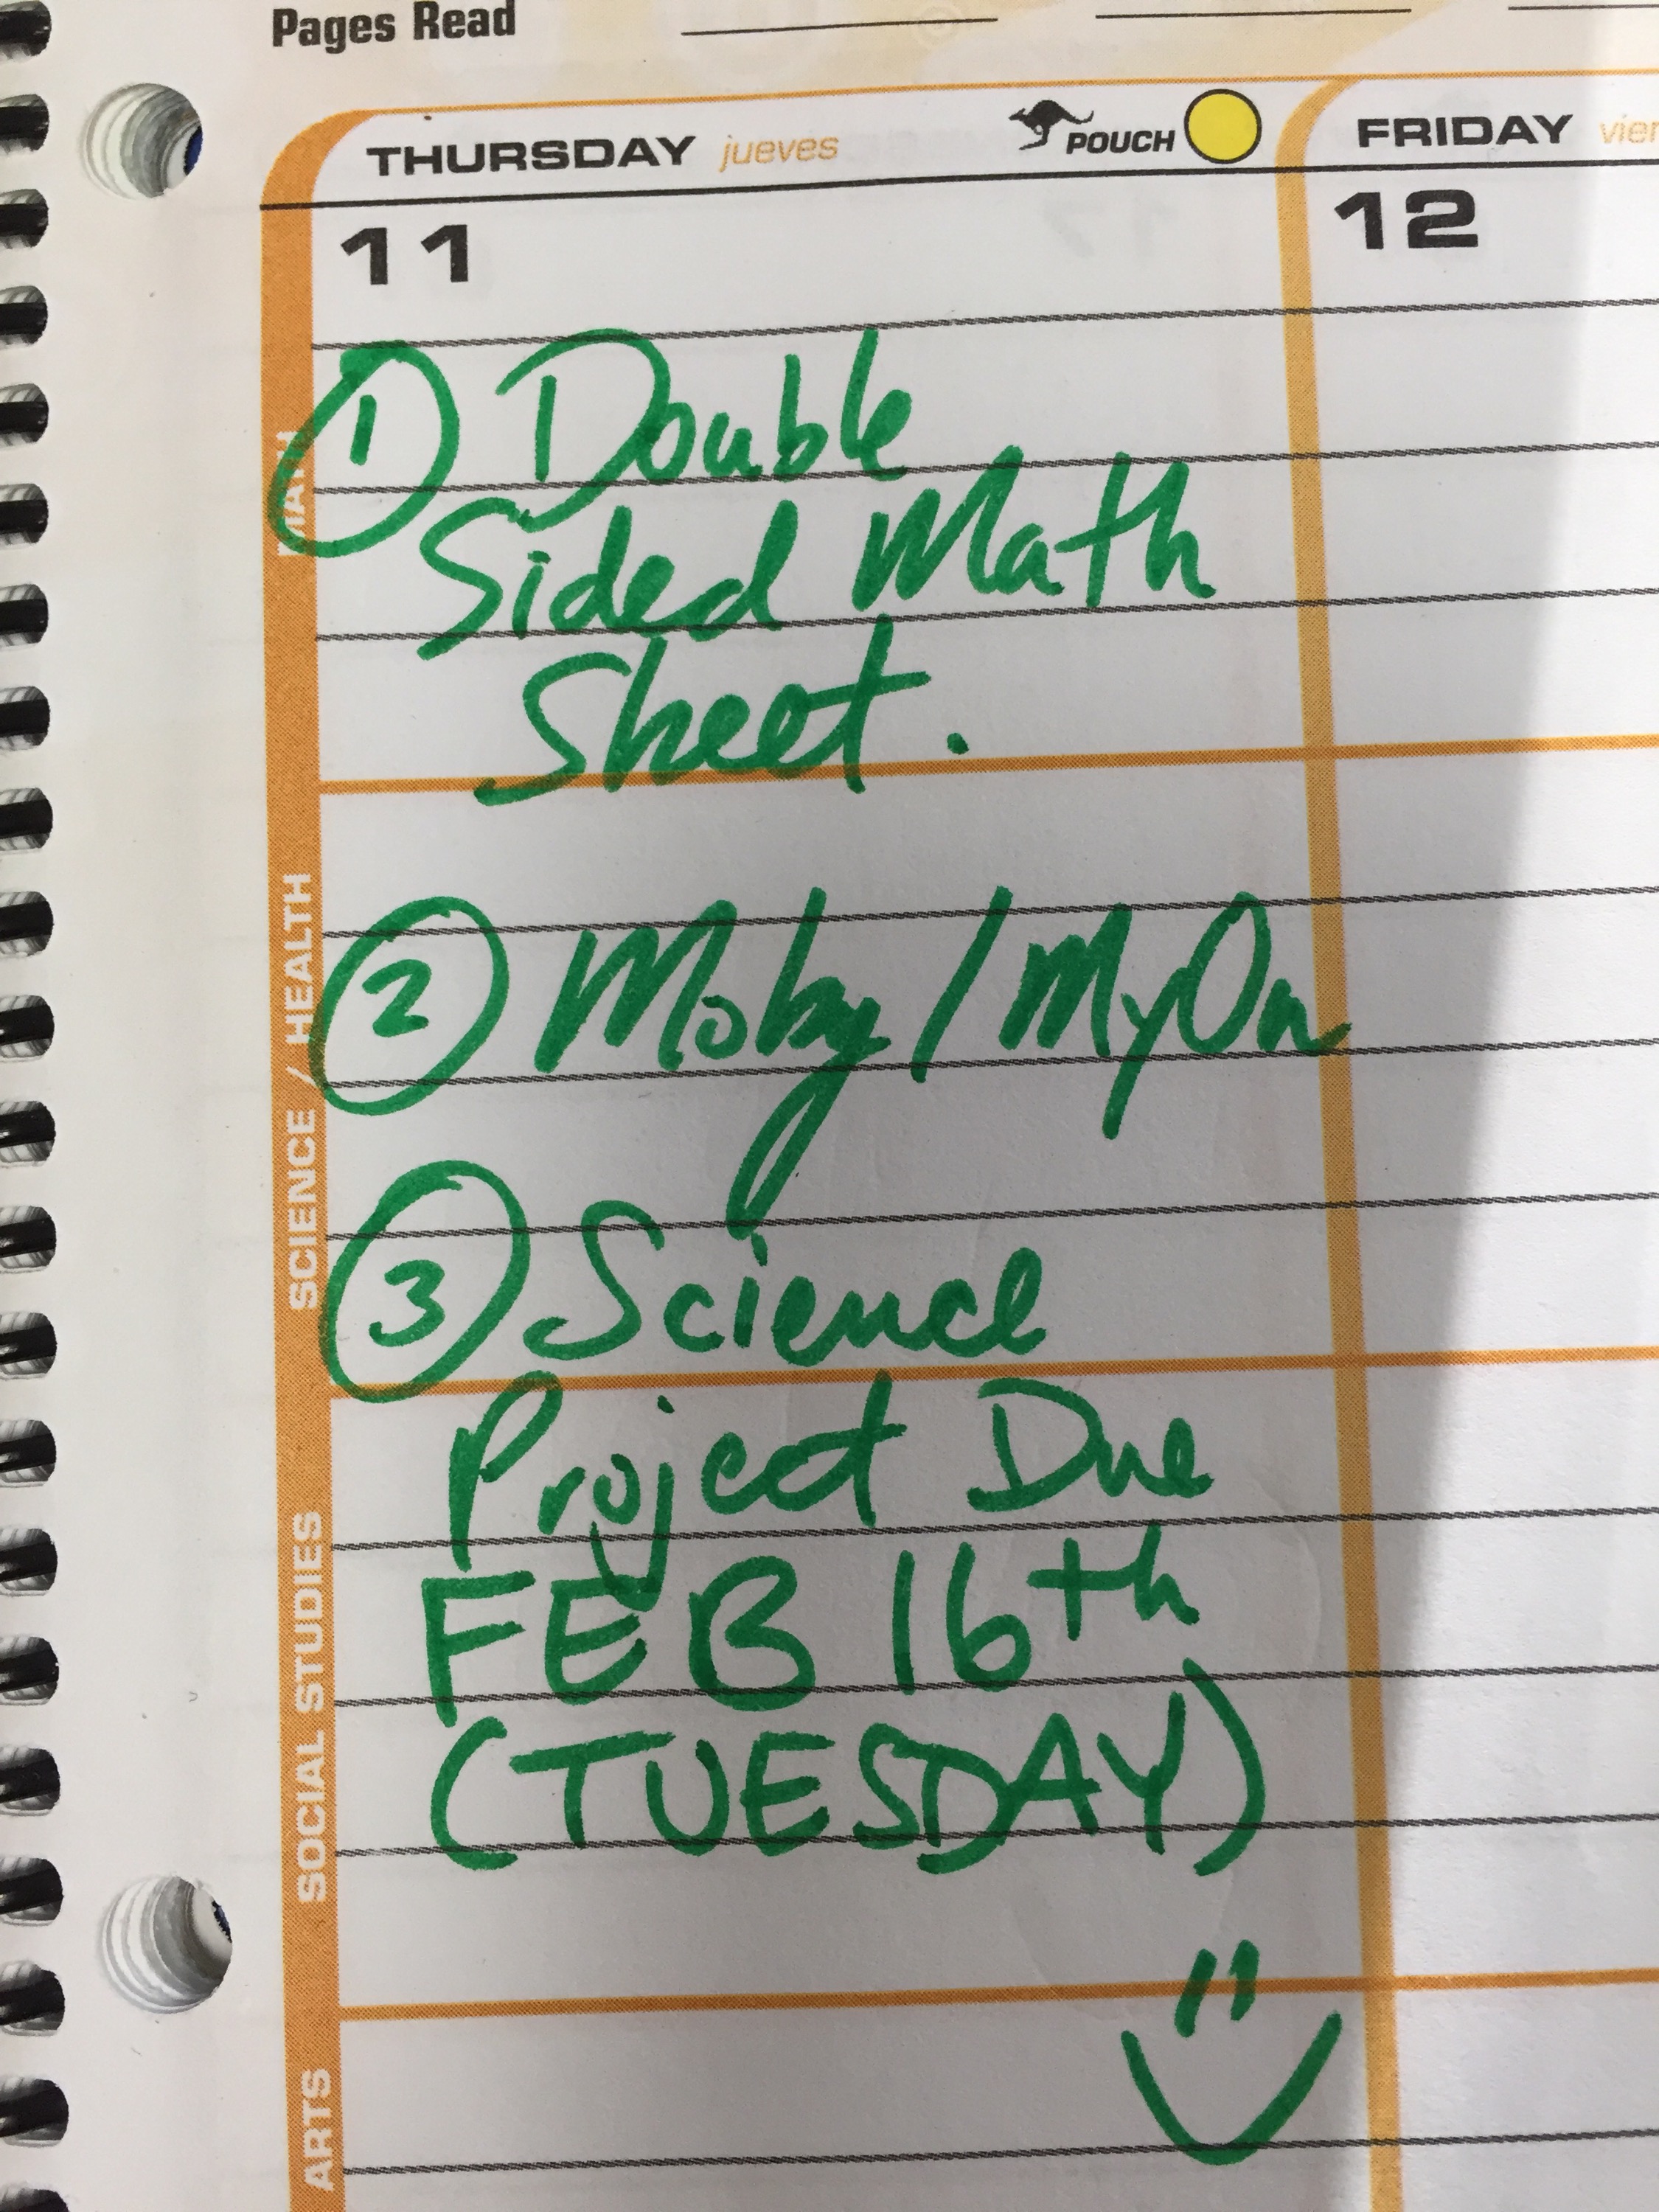 Pages Read
THURSDAY jueves POUCH FRIDAY
11 12
MATH
① Double
Sided Math
Sheet.
SCIENCE / HEALTH
② Moby/MyOn
③ Science
Project Due
SOCIAL STUDIES
FEB 16th
(TUESDAY)
ARTS